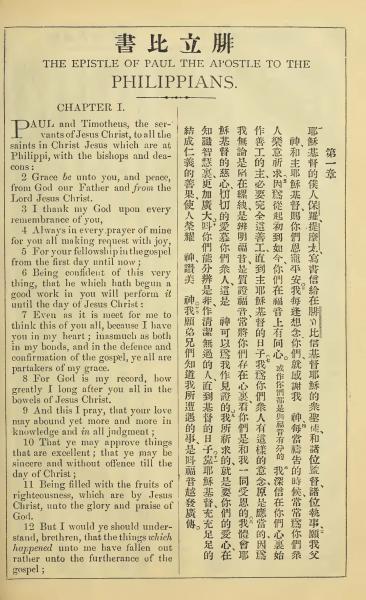 腓立比書
THE EPISTLE OF PAUL THE APOSTLE TO THE
PHILIPPIANS.
CHAPTER I.
PAUL and Timotheus, the ser-
vants of Jesus Christ, to all the
saints in Christ Jesus which are at
Philippi, with the bishops and dea-
cons :
2 Grace be unto you, and peace,
from God our Father and from the
Lord Jesus Christ.
3 I thank my God upon every
remembrance of you,
4 Always in every prayer of mine
for you all making request with joy,
5 For your fellowship in the gospel
from the first day until now ;
6 Being confident of this very
thing, that he which hath begun a
good work in you will perform it
until the day of Jesus Christ :
7 Even as it is meet for me to
think this of you all, because I have
you in my heart ; inasmuch as both
in my bonds, and in the defence and
confirmation of the gospel, ye all are
partakers of my grace.
8 For God is my record, how
greatly I long after you all in the
bowels of Jesus Christ.
9 And this I pray, that your love
may abound yet more and more in
knowledge and in all judgment ;
10 That ye may approve things
that are excellent ; that ye may be
sincere and without offence till the
day of Christ ;
11 Being filled with the fruits of
righteousness, which are by Jesus
Christ, unto the glory and praise of
God.
12 But I would ye should under-
stand, brethren, that the things which
happened unto me have fallen out
rather unto the furtherance of the
gospel ;
第一章
耶穌基督的僕人保羅提摩太寫書信給在腓立比信基督耶穌的衆聖徒和諸位監督諸位執事願我父
神和主耶穌基督賜你們恩寵平安我每逢想念你們就感謝我 神每當禱告的時候常常爲你們衆
人樂意祈求因爲從起初到如今你們在福音上有同心或作你們都是與福音有分的我深信在你們心裏始
作善工的主必要完全這善工直到主耶穌基督的日子我爲你們衆人有這樣的意念原是應當的因爲
我無論是陷在縲絏是辨明福音是質證福音常將你們存在心裏看你們是和我一同受恩的我體會耶
穌基督的慈心切切的愛慕你們衆人這是 神可以爲我作見證的我所祈求的就是要你們的愛心在
知識智慧裏更加廣大叫你們能分辨是非作清潔無過的人直到基督的日子靠耶穌基督充充足足的
結成仁義的善果使人榮耀 神讚美 神我願弟兄們知道我所遭遇的事是叫福音越發廣傳。